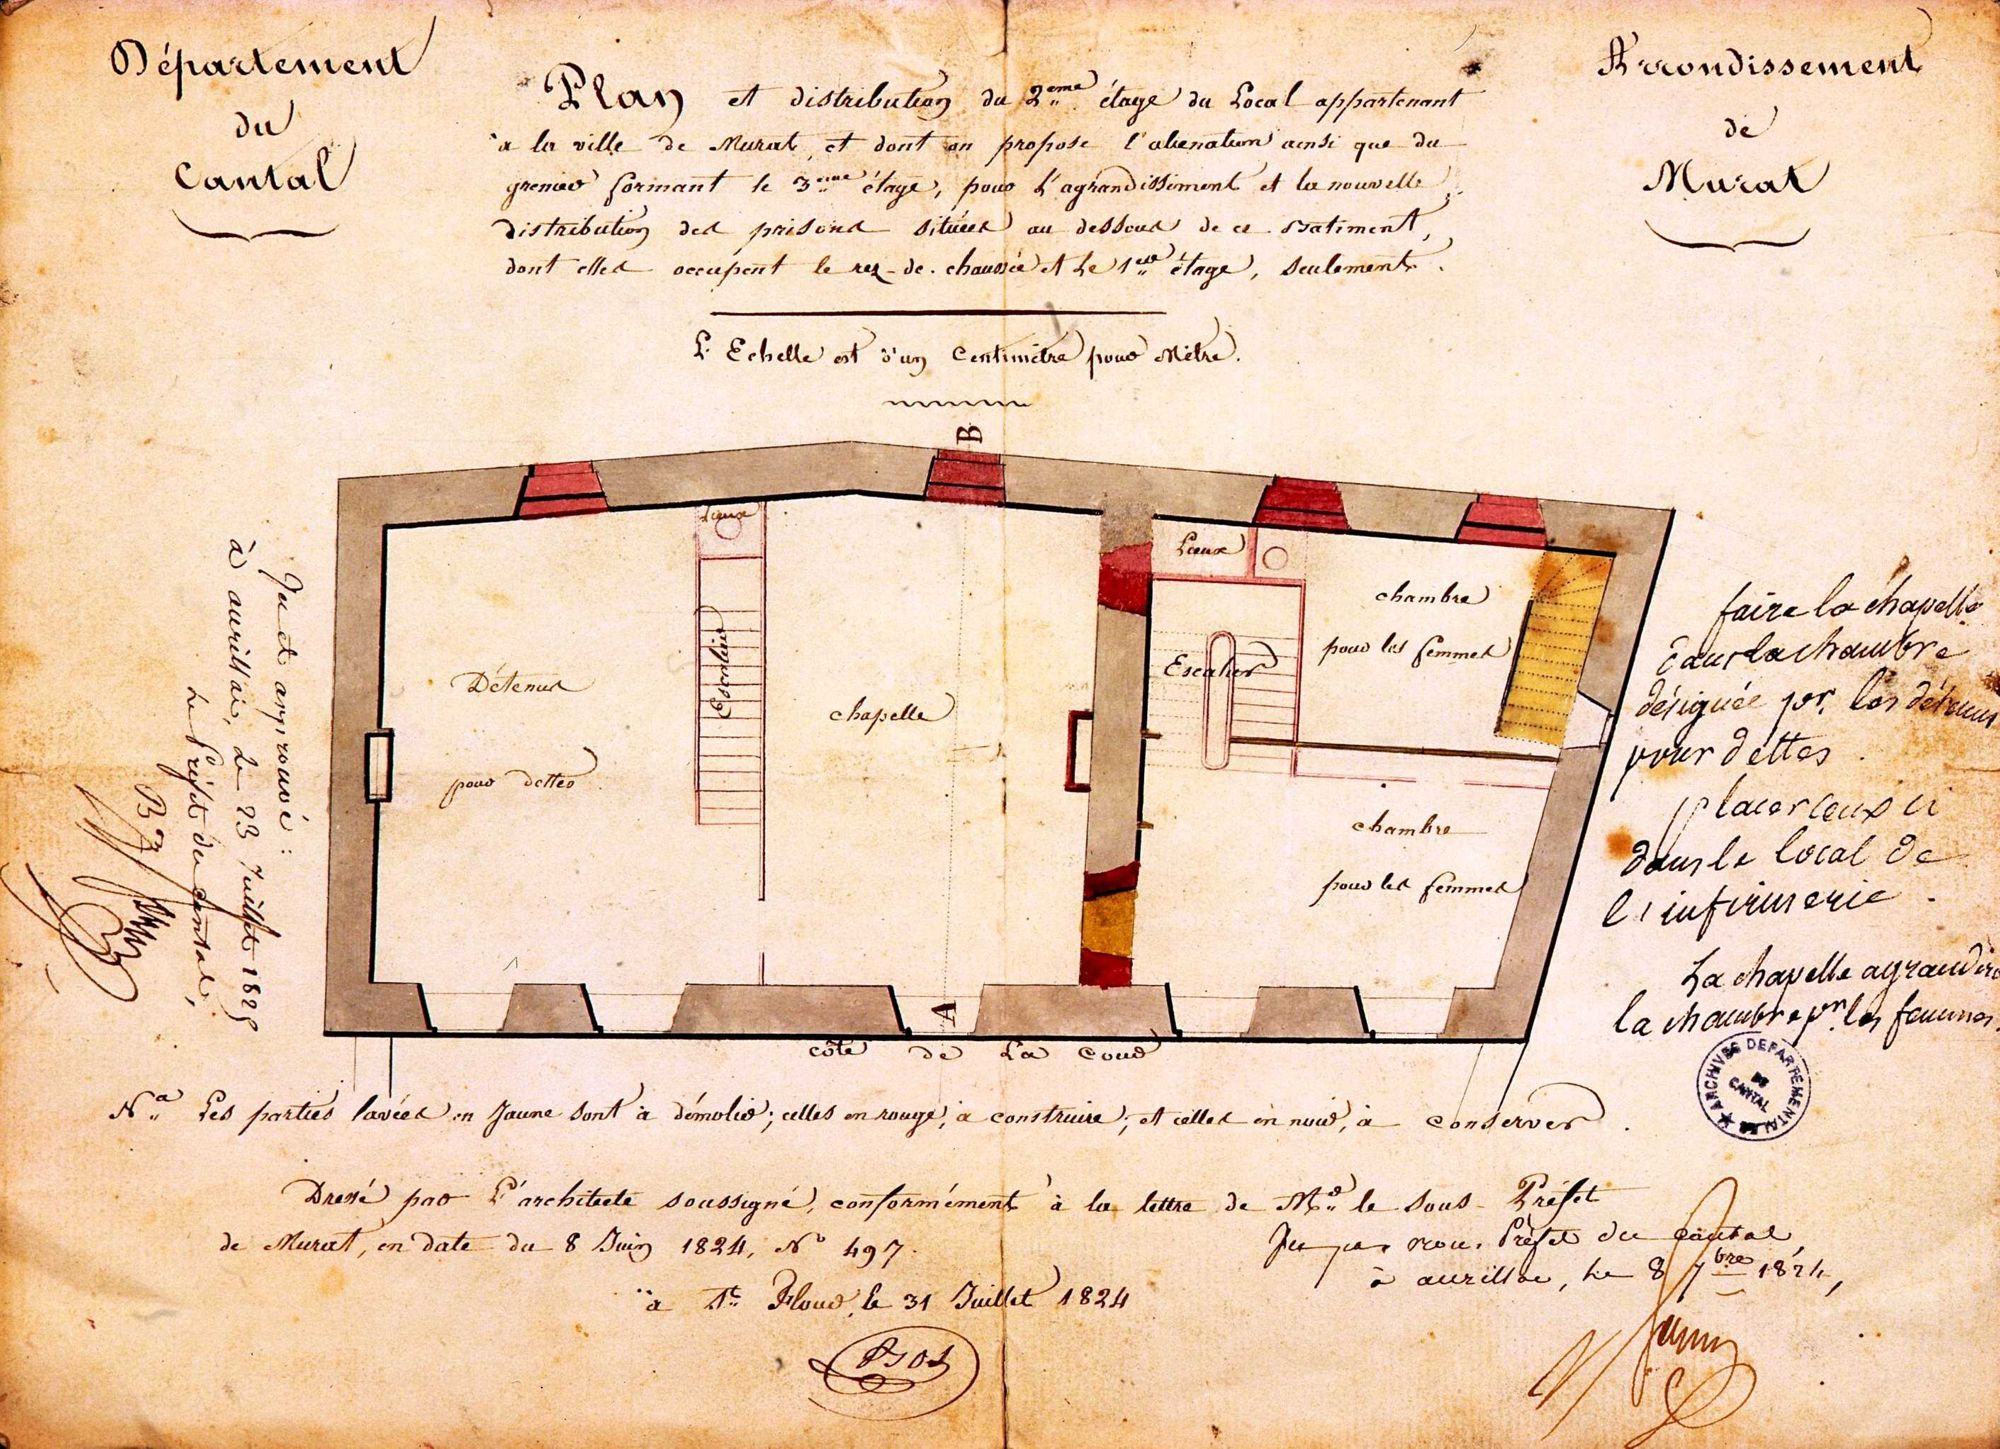 Département
du
Cantal
Arrondissement
de
Murat
Plan et distribution du 2ème étage du Local appartenant
à la ville de Murat, et dont on propose l'alienation ainsi que du
grenier formant le 3ème étage, pour l'agrandissement et la nouvelle
distribution des prisons situées au dessous de ce Batiment,
dont elles occupent le rez-de-chaussée et le 1er étage, seulement.
L'Echelle est d'un Centimètre pour Mètre.
B
Lieux
Lieux
chambre
pour les femmes
Escalier
Escalier
Détenus
pour dettes
chapelle
chambre
pour les femmes
A
côté de La Cour
Vu et approuvé :
à aurillac, le 23 Juillet 1825
Le Préfet du Cantal,
faire la chapelle
dans la chambre
désignée pr. les détenus
pour dettes.
placer ceux ci
dans le local de
l'infirmerie.
La chapelle agrandira
la chambre pr. les femmes.
ARCHIVES DEPARTEMENTALES
DU
CANTAL
Na Les parties lavées en Jaune sont à démolir; celles en rouge, à construire; et celles en noir, à conserver.
Dressé par L'architecte soussigné, conformément à la lettre de Mr. le Sous-Préfet
de Murat, en date du 8 Juin 1824, No 497.
à St. Flour, le 31 Juillet 1824
Vu par nous Préfet du Cantal,
à aurillac, le 8 7bre 1824,